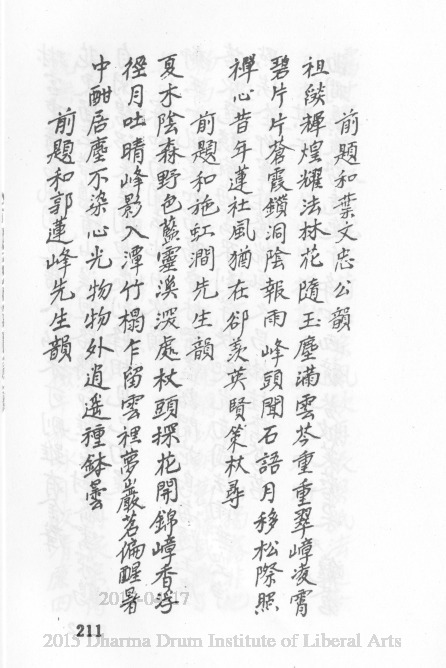 前題和葉文忠公韻
祖燄輝煌耀法林花隨玉麈滿雲岑重重翠嶂凌霄
碧片片蒼霞鎖洞陰報雨峰頭聞石語月移松際照
禪心昔年蓮社風猶在卻羨英賢策杖尋
前題和施虹澗先生韻
夏木陰森野色藍靈溪深處杖頭探花開錦嶂香浮
徑月吐晴峰影入潭竹榻乍留雲裡夢巖茗偏醒暑
中酣居塵不染心光物物外逍遥種鉢曇
前題和郭蓮峰先生韻
211
2015 Dharma Drum Institute of Liberal Arts